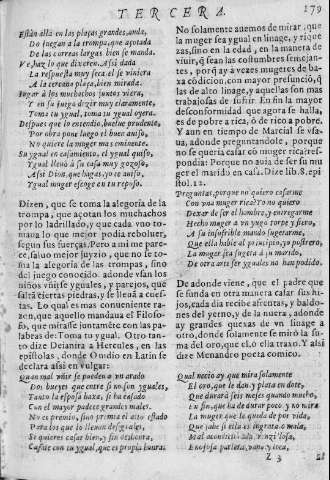 TERCERA.
179
Están allá en las plaças grandes, anda,
Do juegan a la trompa, que açotada
De las correas largas bien se mando
Ve, haz lo que dixeren. Assi dada
La respuesta muy seca, el se viniera
A la tercera plaça, bien mirada.
Iugar â los muchachos juntos viera,
Y en su juego dezir muy claramente,
Toma tu ygual, toma tu ygual oyera.
Despues que lo entendio, hombre prudente
Por obra pone luego el buen auiso,
No quiere la muger mas eminente.
Su ygual en casamiento, el ygual quiso,
Ygual lleuó â su casa muy gozoso,
Assi Dion, que hagas, yo te auiso,
Ygual muger escoge en tu reposo.
Dizen, que se toma la alegoria de la
trompa, que açotan los muchachos
por lo ladrillado, y que cada vno to-
maua lo que mejor podia reboluer,
segun sus fuerças. Pero a mi me pare-
ce, saluo mejor juyzio, que no le to-
ma la alegoria de las trompas, sino
del juego conocido adonde vsan los
niños vñirse yguales, y parejos, que
salta ciertas piedras, y se lleuâ a cues-
tas. Lo qual es mas conueniente ra-
zon, que aquello mandaua el Filoso-
fo, que mirasse juntamête con las pa-
labras de: Toma tu ygual. Otro tan-
to dize Deianira â Hercules, en las
epistolas, donde Ouidio en Latin se
declara assi en vulgar:
Quan mal vñir se pueden a vn arado
Dos bueyes que entre si no son yguales,
Tanto la esposa baxa, si ha casado
Con el mayor padece grandes males.
No es premio, sino premia el alto estado
Para los que lo lleuan desguales,
Si quieres casar bien, y sin deshonra,
Cassate con tu ygual, que es propia honra.
No solamente auemos de mirar, que
la muger sea ygual en linage, y rique
zas, sino en la edad, en la manera de
viuir, q̃ sean las costumbres semejan-
tes, porq̃ ay a vezes mugeres de ba-
xa códicion, con mayor presunció, q̃
las de alto linage, y aquellas son mas
trabajosas de sufrir. En fin la mayor
desconformidad que agora se halla,
es de pobre a rica, ó de rico a pobre.
Y aun en tiempo de Marcial se vsa-
ua, adonde preguntandole, porque
no se queria casar có muger rica? res-
pondia: Porque no auia de ser su mu
ger el marido en casa. Dize lib. 8. epi
stol. 12.
Preguntas, porque no quiero casarme
Con vna muger rica? Yo no quiero
Dexar de ser el hombre, y entregarme
Hecho muger a vn yugo torpe y fiero,
A su insufrible mando sugetarme,
Que ella hable al principio, yo postrero,
La muger sea sugeta a su marido,
De otra arte ser yguales no han podido.
De adonde viene, que el padre que
se funda en otra manera casar sus hi-
jos, cada dia recibe afrentas, y baldo-
nes del yerno, y de la nuera, adonde
ay grandes quexas de vn linage a
otro, donde solamente se miró la su-
ma del oro, que el, ò ella traxo. Y alsi
dize Menandro poeta comico.
Qual necio ay, que mira solamente
El oro, que le dan y plata en dote,
Que durará seis meses quando mucho,
En fin, que ha de durar poco, y no mira
La muger que le queda de por vida,
Que sabe si ella es ingrata o mala,
Mal acondicionada,
Enojosa parlera, vana, y loca,
Z 3